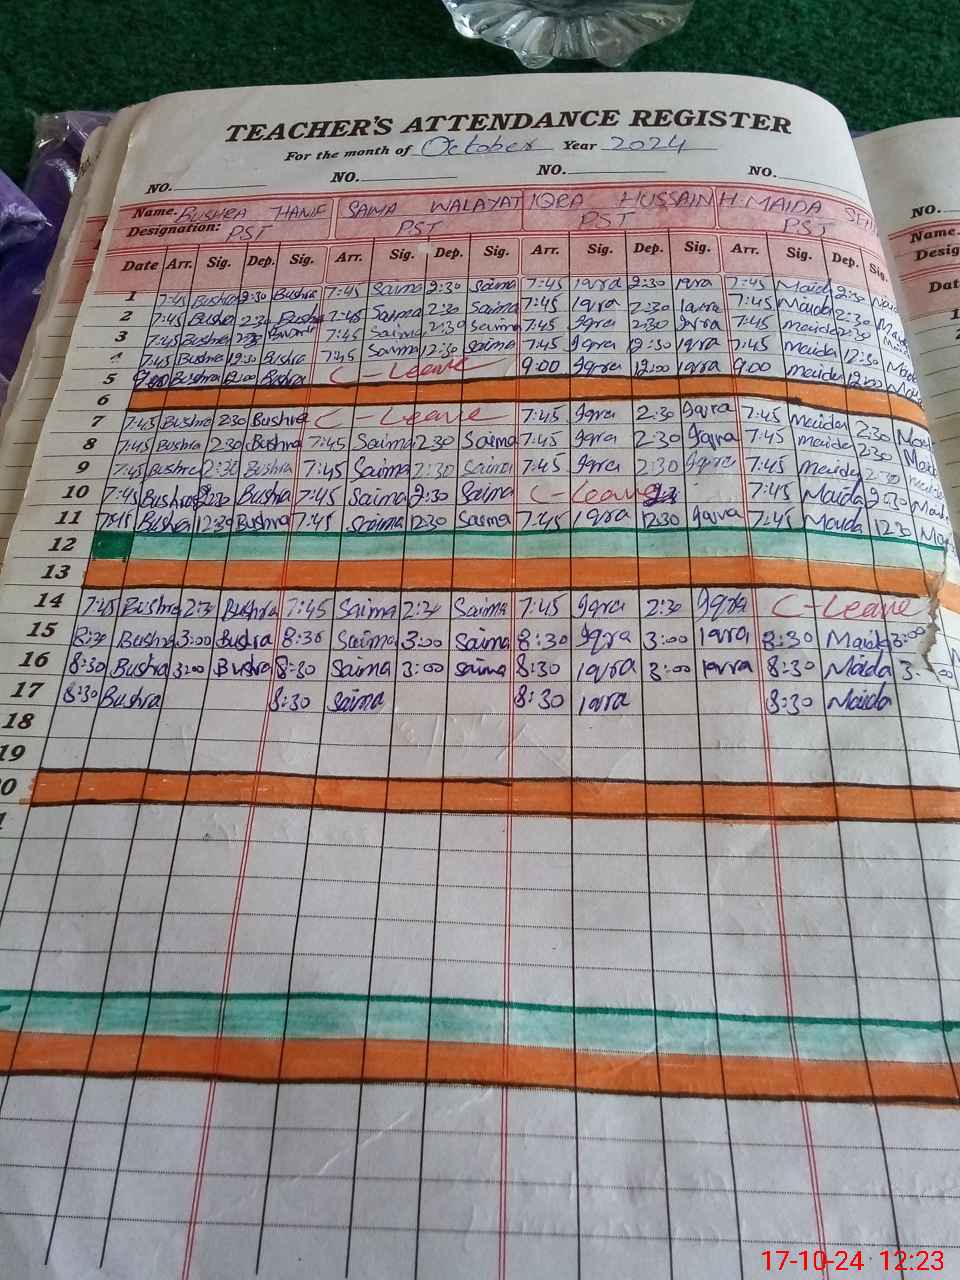 TEACHER'S ATTENDANCE REGISTER
For the month of October Year 2024
NO. NO. NO. NO.
Name. BUSHRA HANIF SAIMA WALAYAT IQRA HUSSAIN H. MAIDA
Designation: PST PST PST PST
Date Arr. Sig. Dep. Sig. Arr. Sig. Dep. Sig. Arr. Sig. Dep. Sig. Arr. Sig. Dep. Sig.
1 7:45 Bushra 2:30 Bushra 7:45 Saima 2:30 Saima 7:45 Iqra 2:30 Iqra 7:45 Maida 2:30
2 7:45 Bushra 2:30 Bushra 7:45 Saima 2:30 Saima 7:45 Iqra 2:30 Iqra 7:45 Maida 2:30
3 7:45 Bushra 2:30 7:45 Saima 2:30 Saima 7:45 Iqra 2:30 Iqra 7:45 Maida 2:30
4 7:45 Bushra 12:30 Bushra 7:45 Saima 12:30 Saima 7:45 Iqra 12:30 Iqra 7:45 Maida 12:30
5 9:00 Bushra 12:00 Bushra C-Leave 9:00 Iqra 12:00 Iqra 9:00 Maida 12:00
6
7 7:45 Bushra 2:30 Bushra C-Leave 7:45 Iqra 2:30 Iqra 7:45 Maida 2:30
8 7:45 Bushra 2:30 Bushra 7:45 Saima 2:30 Saima 7:45 Iqra 2:30 Iqra 7:45 Maida 2:30
9 7:45 Bushra 2:30 Bushra 7:45 Saima 2:30 Saima 7:45 Iqra 2:30 Iqra 7:45 Maida 2:30
10 7:45 Bushra 2:30 Bushra 7:45 Saima 2:30 Saima C-Leave 7:45 Maida 2:30
11 7:45 Bushra 12:30 Bushra 7:45 Saima 12:30 Saima 7:45 Iqra 12:30 Iqra 7:45 Maida 12:30
12
13
14 7:45 Bushra 2:30 Bushra 7:45 Saima 2:30 Saima 7:45 Iqra 2:30 Iqra C-Leave
15 8:30 Bushra 3:00 Bushra 8:30 Saima 3:00 Saima 8:30 Iqra 3:00 Iqra 8:30 Maida 3:00
16 8:30 Bushra 3:00 Bushra 8:30 Saima 3:00 Saima 8:30 Iqra 3:00 Iqra 8:30 Maida 3:00
17 8:30 Bushra 8:30 Saima 8:30 Iqra 8:30 Maida
18
19
0
NO.
Name.
Desig
Dat
17-10-24 12:23